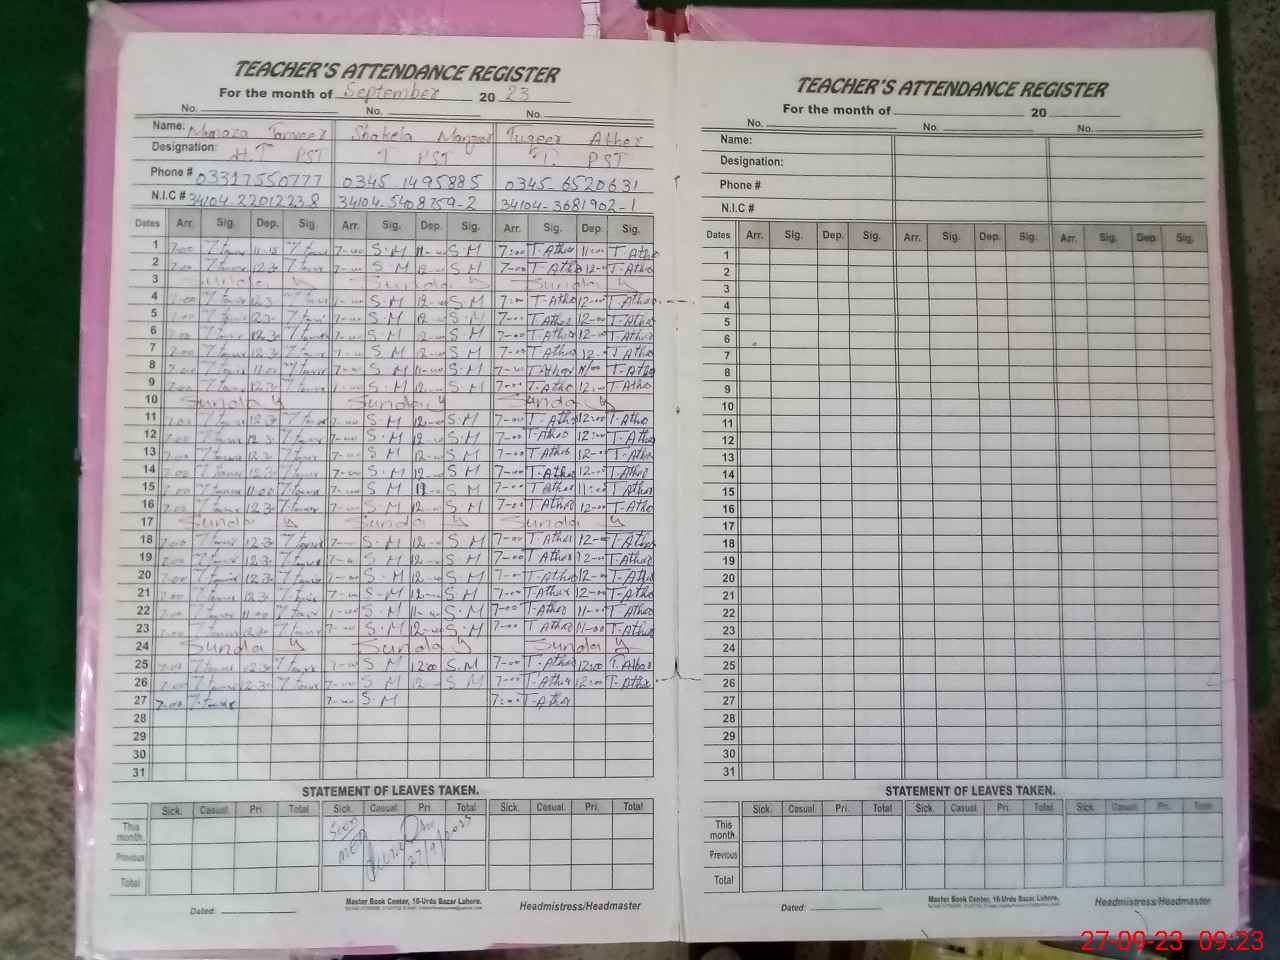 TEACHER'S ATTENDANCE REGISTER
For the month of September 20 23
No. No. No.
Name: Tanveer Shakela Manzoor Tuqeer Ather
Designation: H.T PST T PST T. PST
Phone # 03317550777 0345-1495885 0345-6520631
N.I.C # 34104-22012238 34104-5408759-2 34104-3681902-1
Dates Arr. Sig. Dep. Sig. Arr. Sig. Dep. Sig. Arr. Sig. Dep. Sig.
1 7-00 11-15 7-00 S.M 11-00 S.M 7:00 T-Ather 11:00 T-Ather
2 7-00 12-3 7-00 S M 12-00 S M 7-00 T-Ather 12-00 T-Ather
3 Sunday Sunday Sunday
4 7-00 12-3 7-00 S.M 12-00 S M 7-00 T-Ather 12-00 T-Ather
5 7-00 12-3 7-00 S M 12-00 S.M 7-00 T Ather 12-00 T-Ather
6 7-00 12-3 7-00 S M 12-00 S M 7-00 T Ather 12-00 T-Ather
7 7-00 12-3 7-00 S M 12-00 S M 7-00 T Ather 12-00 T Ather
8 7-00 11-00 7-00 S.M 11-00 S.M 7-00 T-Ather 11/00 T-Ather
9 7-00 12-3 7-00 S.M 12-00 S M 7-00 T-Ather 12-00 T-Ather
10 Sunday Sunday Sunday
11 7-00 12-3 7-00 S.M 12-00 S.M 7-00 T-Ather 12:00 T-Ather
12 7-00 12-3 7-00 S.M 12-00 S.M 7-00 T-Ather 12:00 T-Ather
13 7-00 12-3 7-00 S M 12-00 S M 7-00 T-Ather 12-00 T-Ather
14 7-00 12-3 7-00 S.M 12-00 S M 7-00 T-Ather 12-00 T-Ather
15 7-00 11-00 7-00 S M 11 S M 7-00 T Ather 11:00 T Ather
16 7-00 12-3 7-00 S.M 12-00 S M 7-00 T.Ather 12-00 T-Ather
17 Sunday Sunday Sunday
18 7-00 12-3 7-00 S.M 12-00 S.M 7-00 T-Ather 12-00 T-Ather
19 7-00 12-3 7-00 S.M 12-00 S.M 7-00 T Ather 12-00 T-Ather
20 7-00 12-3 7-00 S.M 12-00 S.M 7-00 T-Ather 12-00 T-Ather
21 7-00 12-3 7-00 S.M 12-00 S.M 7-00 T-Ather 12-00 T-Ather
22 7-00 11-00 7-00 S.M 11-00 S.M 7-00 T-Ather 11-00 T Ather
23 7-00 12-3 7-00 S.M 12-00 S.M 7-00 T Ather 11-00 T-Ather
24 Sunday Sunday Sunday
25 7-00 12-3 7-00 S M 1200 S.M 7-00 T-Ather 12:00 T.Ather
26 7-00 12-3 7-00 S M 12-00 S M 7-00 T-Ather 12:00 T-Ather
27 7-00 7-00 S.M 7:00 T-Ather
28
29
30
31
STATEMENT OF LEAVES TAKEN.
Sick. Casual. Pri. Total Sick. Casual. Pri. Total Sick. Casual. Pri. Total
This month.
Seen
Previous
27/9/2023
Total
Dated:
Master Book Center, 16-Urdu Bazar Lahore.
Headmistress/Headmaster
TEACHER'S ATTENDANCE REGISTER
For the month of 20
No. No. No.
Name:
Designation:
Phone #
N.I.C #
Dates Arr. Sig. Dep. Sig. Arr. Sig. Dep. Sig. Arr. Sig. Dep. Sig.
1
2
3
4
5
6
7
8
9
10
11
12
13
14
15
16
17
18
19
20
21
22
23
24
25
26
27
28
29
30
31
STATEMENT OF LEAVES TAKEN.
Sick. Casual. Pri. Total Sick. Casual. Pri. Total Sick. Casual. Pri. Total
This month.
Previous
Total
Dated:
Master Book Center, 16-Urdu Bazar Lahore.
Headmistress/Headmaster
27-09-23 09:23